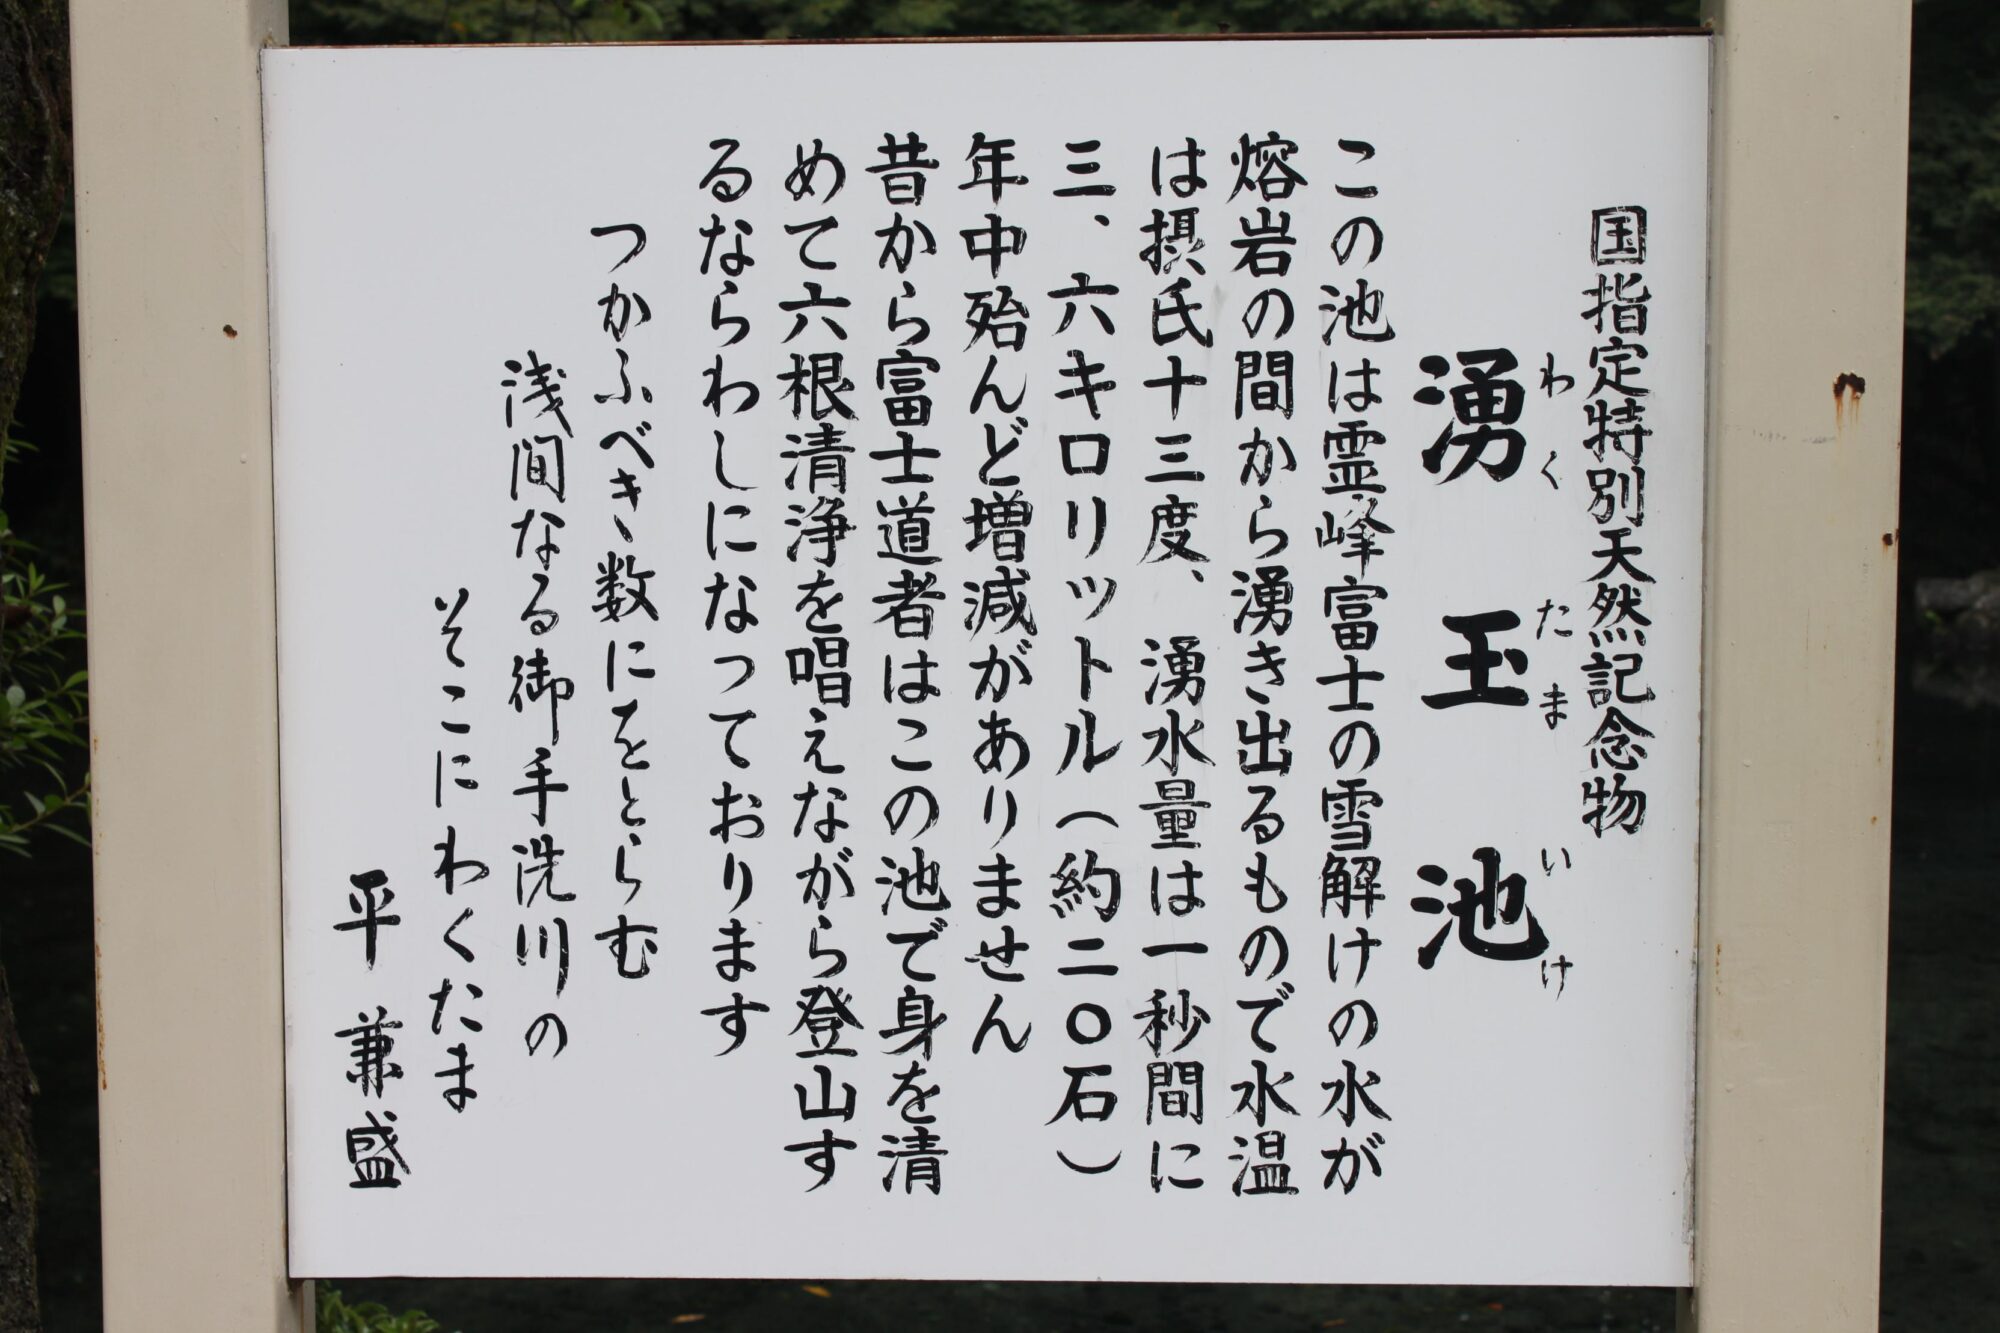 国指定特別天然記念物
湧玉池
わくたまいけ
この池は霊峰富士の雪解けの水が
熔岩の間から湧き出るもので水温
は摂氏十三度、湧水量は一秒間に
三、六キロリットル(約二〇石)
年中殆んど増減がありません
昔から富士道者はこの池で身を清
めて六根清浄を唱えながら登山す
るならわしになっております
つかふべき数にをとらむ
浅間なる御手洗川の
そこにわくたま
平兼盛